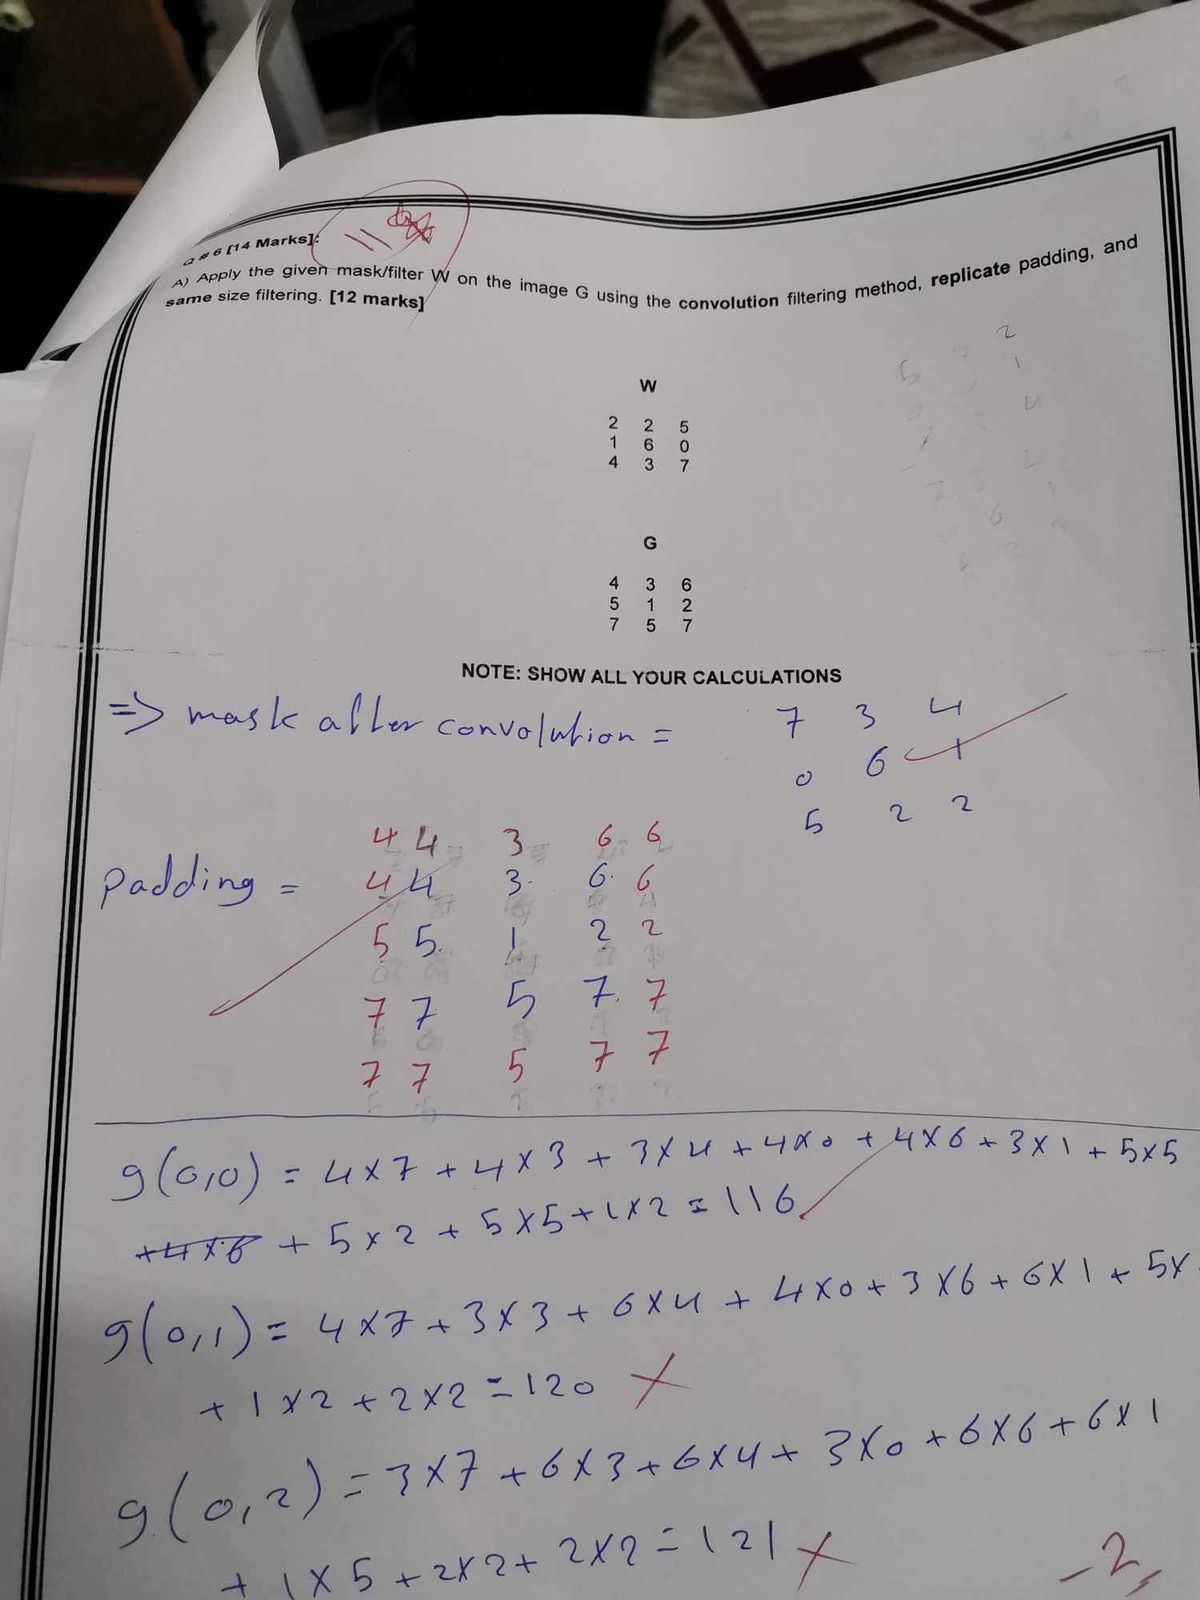 Q # 6 [14 Marks]:
11
A) Apply the given mask/filter W on the image G using the convolution filtering method, replicate padding, and
same size filtering. [12 marks]
W
2 2 5
1 6 0
4 3 7
G
4 3 6
5 1 2
7 5 7
NOTE: SHOW ALL YOUR CALCULATIONS
=> mask after convolution = 7 3 4
0 6 1
5 2 2
4 4 3 6 6
padding = 4 4 3 6 6
5 5 1 2 2
7 7 5 7 7
7 7 5 7 7
g(0,0) = 4×7 + 4×3 + 3×4 + 4×0 + 4×6 + 3×1 + 5×5
+4×6 + 5×2 + 5×5 + 1×2 = 116
g(0,1) = 4×7 + 3×3 + 6×4 + 4×0 + 3×6 + 6×1 + 5×
+ 1×2 + 2×2 = 120 ×
g(0,2) = 3×7 + 6×3 + 6×4 + 3×0 + 6×6 + 6×1
+ 1×5 + 2×2 + 2×2 = 121 ×
-2